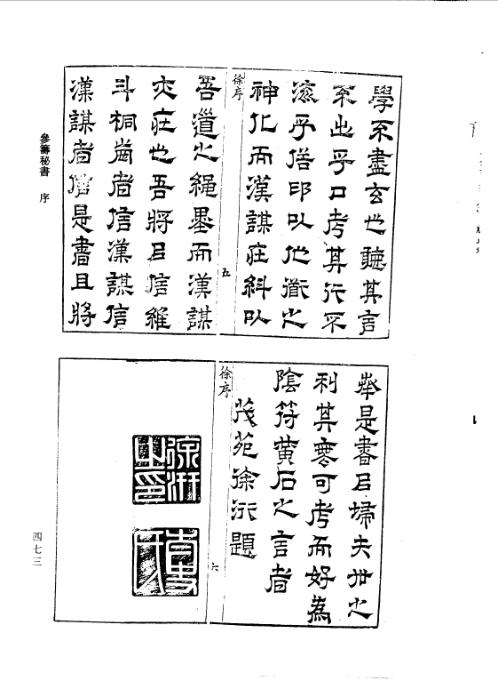 學不盡玄也聽其言
不出乎口考其行不
乎印以他道之
徐序
神化而漢謀在糾以
五
吾道之繩墨而漢謀
在也吾將以信維
斗桐者信漢謀信
漢謀者信是書且將
參籌秘書 序
是書以夫世之
利其可考而好為
陰符黃石之言者
徐序
茂苑徐沂題
六
四七三